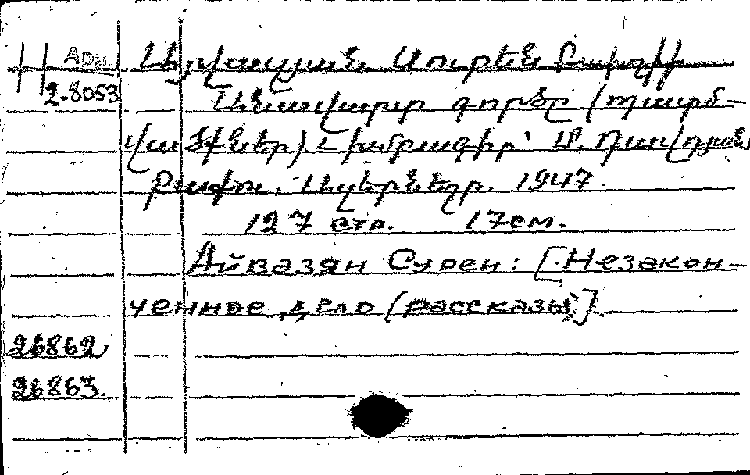 Арм Այվազյան, Սուրեն
2.8053 Անավարտ գործը (պատմ-
վածքներ) Խմբագիր՝
Բաքու, Ազերնեշր. 1947.
127 стр. 17 см.
Айвазян Сурен: [Незакон-
ченное дело (рассказы]
26862
26863.